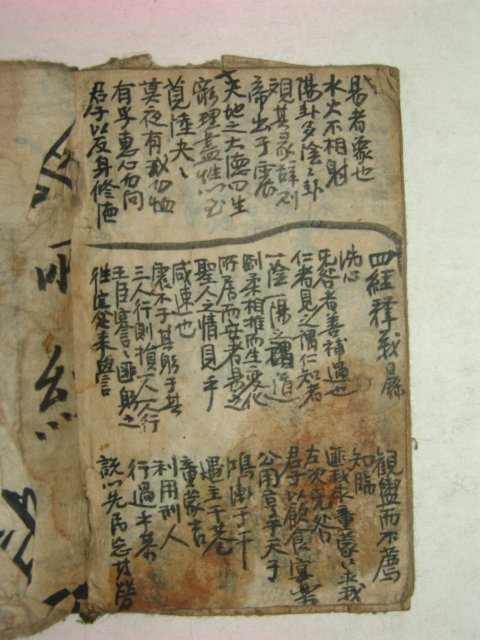 易者象也
水火不相射
陽卦多陰〻卦
観其彖辞則
帝出于震
天地之大德曰生
窮理盡性以至
莧陸夬〻
莫夜有戎勿恤
有孚惠心勿問
君子以反身修德
四經釋義目录
洗心
无咎者善補過也
仁者見之謂仁知者
一陰一陽之謂道
剛柔相推而生變化
所居而安者易之
聖人之情見乎
咸速也
震不于其躬于其
三人行則損一人一行
王臣蹇〻匪躬之
往蹇來譽
觀盥而不薦
知臨
匪我求童蒙〻求我
左次无咎
君子以飲食宴樂
公用亨于天子
鴻漸于干
遇主于巷
童蒙吉
利用刑人
行過乎恭
説以先民忘其勞